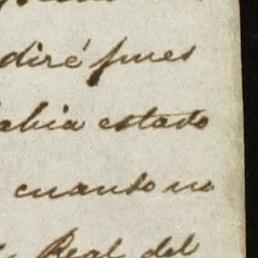 diré pues
abia estado
cuando no
Real del